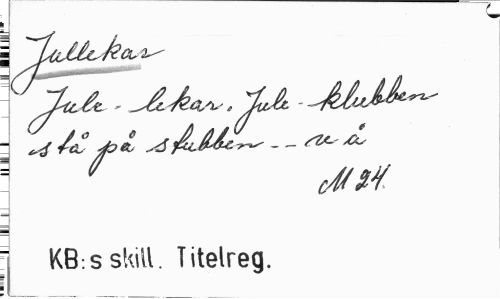 Jullekar
Jule-lekar. Jule-klubben
stå på stubben -- v å
M 24.
KB:s skill. Titelreg.